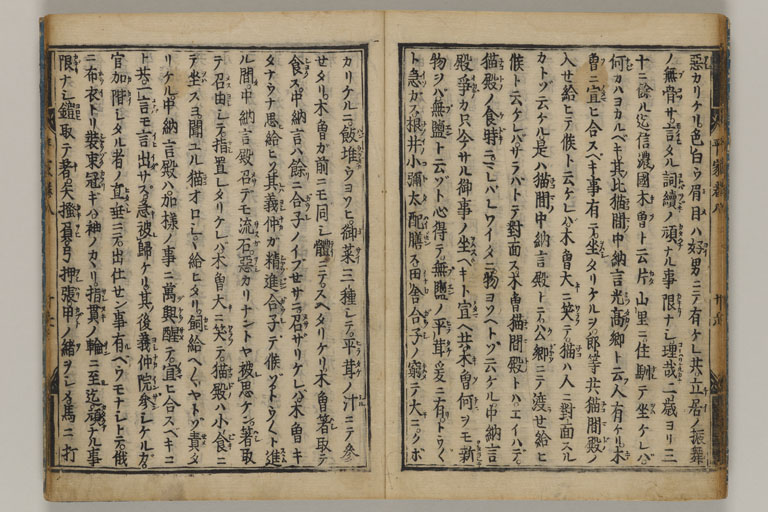 惡カリケル色白ウ眉目ハ好男ニテ有ケレ共立居ノ振舞
ノ無骨サ言タル詞續ノ頑ナル事限ナシ理哉二歳ヨリ三
十ニ餘ル迄信濃國木曽ト云片山里ニ住馴テ坐ケレバ
何カハヨカルベキ其比猫間中納言光高卿ト云人有ケリ木
曽ニ宜ヒ合スベキ事有テ坐タリケルヲ郎等共猫間殿ノ
入セ給ヒテ候ト云ケレバ木曽大ニ笑テ猫ハ人ニ對面スル
カトゾ云ケル是ハ猫間中納言殿トテ公卿ニテ渡セ給ヒ
候ト云ケレバサラバトテ對面ス木曽猫間殿トハエイハデ
猫殿ノ食時ニマレ〳〵ワイタニ物ヨソヘトゾ云ケル中納言
殿爭カ只今サル御事ノ坐ベキト宜ヘ共木曽何ヲモ新
物ヲハ無鹽ト云ゾト心得テ無鹽ノ平茸爰ニ有トウ〳〵
ト急ガス根井小彌太配膳ス田舎合子ノ窮テ大ニクボ
カリケルニ飯堆ウヨソヒ御菜三種シテ平茸ノ汁ニテ參
セタリ木曽ガ前ニモ同シ體ニテスヘタリケリ木曽箸取テ
食ス中納言ハ餘ニ合子ノイブセサニ召ザリケレバ木曽キ
タナウナ思給ヒソ其ハ義仲ガ精進合子デ候ゾトウ〳〵ト進
ル間中納言殿召デモ流石惡カリナントヤ被思ケン箸取
テ召由シテ指置レタリケレバ木曽大ニ笑テ猫殿ハ小食ニ
テ坐スヨ聞エル猫オロシシ給ヒタリ飼給ヘ〳〵ヤトゾ責タ
リケル中納言殿ハ加樣ノ事ニ萬興醒テ宜ヒ合スベキコ
ト共一言モ言出サズ急被歸ケリ其後義仲院參シケルガ
官加階シタル者ノ直垂ニテ出仕セン事有ベウモナシトテ俄
ニ布衣トリ裝束冠ギハ袖ノカヽリ指貫ノ輪ニ至迄頑ナル事
限ナシ鎧取テ著矢搔負弓押張甲ノ緒ヲシメ馬ニ打
平家卷八